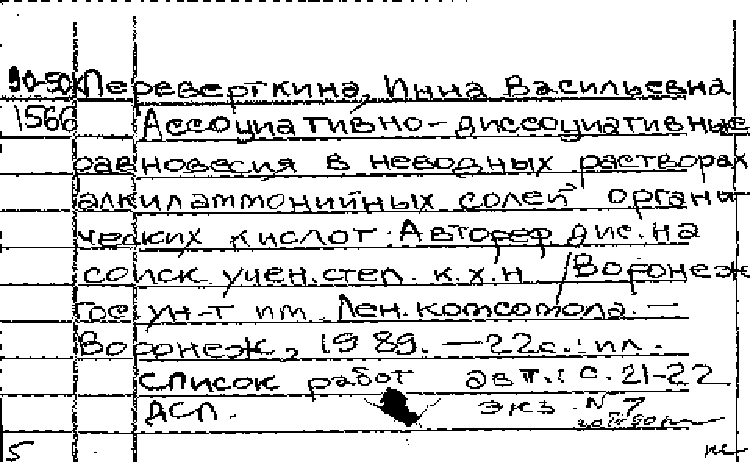 90-50К Переверткина, Инна Васильевна
1566 Ассоциативно-диссоциативные
равновесия в неводных растворах
алкиламмонийных солей органи-
ческих кислот: Автореф дис. на
соиск учен. степ. к.х.н. / Воронеж
гос ун-т им. Лен. комсомола. —
Воронеж, 1989. — 22с.: ил.
Список работ авт.: с. 21-22
ДСП. экз. N 7
5